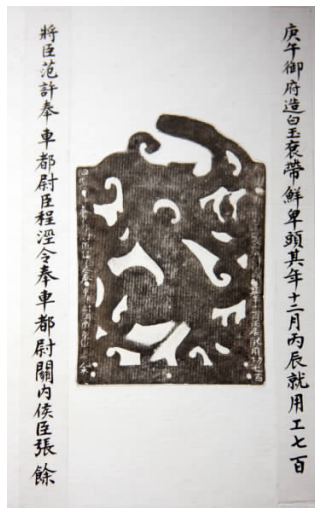 庚午御府造白玉袞帶鮮卑頭其年十二月丙辰就用工七百
將臣范許奉車都尉臣程涇令奉車都尉關內侯臣張餘